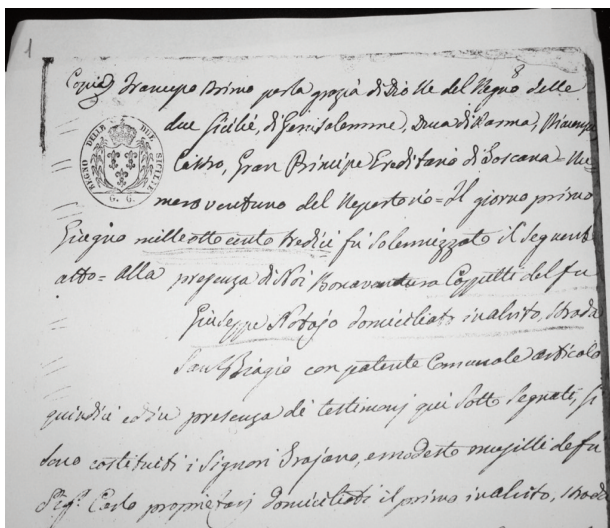 1
Copia) Francesco Primo per la grazia di Dio Re del Regno delle
due Sicilie, di Gerusalemme, Duca di Parma, Piacenza
Castro, Gran Principe Ereditario di Toscana = Nu
mero ventuno del Repertorio = Il giorno primo
REGNO DELLE DUE SICILIE
G. G.
Giugno mille otto cento tredici fu solennizzato il seguente
atto = alla presenza di Noi Bonaventura Coppetti del fu
Giuseppe Notajo domiciliato in alvito, strada
San Biagio con patente Comunale articolo
quindici ed in presenza de testimonj qui sotto segnati, si
sono costituiti i Signori Trajano, e modesto del fu
Sig.r Carlo proprietarj domiciliati il primo in alvito, strada